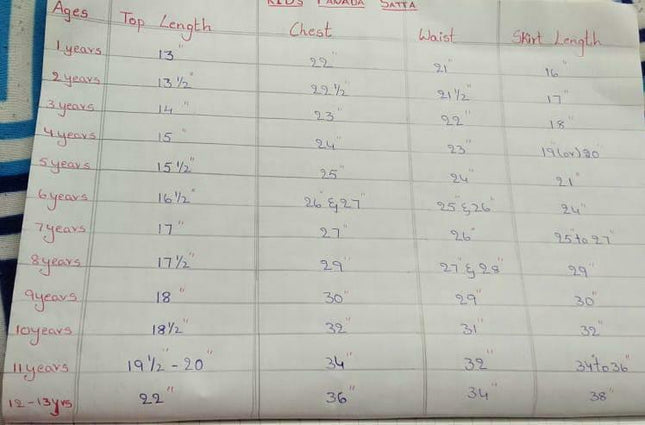 KIDS PAVADA SATTA
Ages Top Length Chest Waist Skirt Length
1 years 13" 22" 21" 16"
2 years 13 1/2" 22 1/2" 21 1/2" 17"
3 years 14" 23" 22" 18"
4 years 15" 24" 23" 19 (or) 20
5 years 15 1/2" 25" 24" 21"
6 years 16 1/2" 26" & 27" 25" & 26" 24"
7 years 17" 27" 26" 25" to 27"
8 years 17 1/2" 29" 27" & 28" 29"
9 years 18" 30" 29" 30"
10 years 18 1/2" 32" 31" 32"
11 years 19 1/2" - 20" 34" 32" 34" to 36"
12-13 yrs 22" 36" 34" 38"